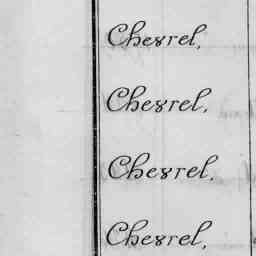 Chevrel,
Chevrel,
Chevrel,
Chevrel,